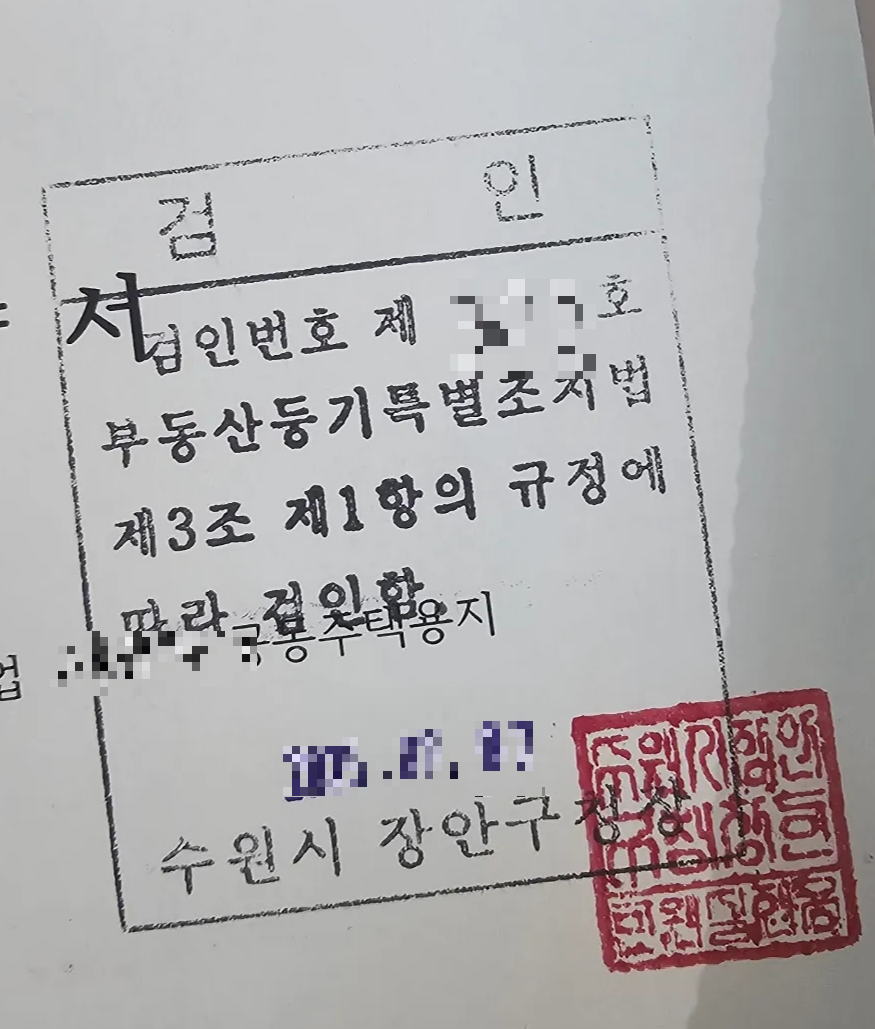 검 인
서
검인번호 제 호
부동산등기특별조치법
제3조 제1항의 규정에
따라 검인함.
업 공동주택용지
수원시 장안구청장